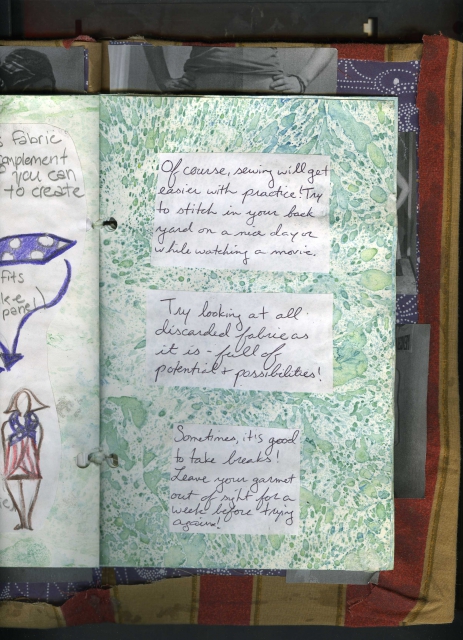 s fabric
you can
to create
fits
panel)
Of course, sewing will get
easier with practice! Try
to stitch in your back
yard on a nice day or
while watching a movie.
Try looking at all
discarded fabric as
it is - full of
potential + possibilities!
Sometimes, it's good
to take breaks!
Leave your garmet
out of sight for a
week before trying
again!